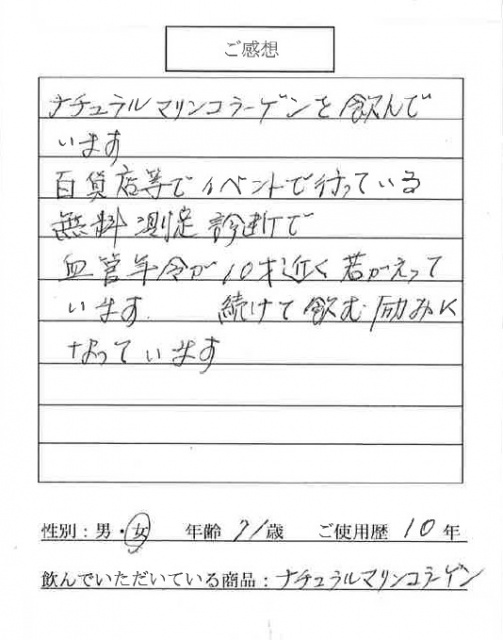 ご感想
ナチュラルマリンコラーゲンを飲んで
います
百貨店等でイベントで行っている
無料測定診断で
血管年令が10才近く若がえって
います. 続けて飲む励みに
なっています
性別：男・女 年齢 71歳 ご使用歴 10年
飲んでいただいている商品：ナチュラルマリンコラーゲン